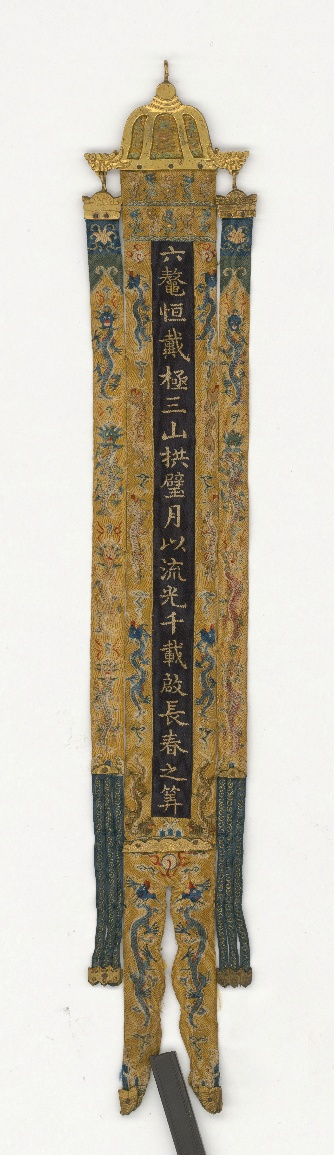 六鼇恒戴極三山拱璧月以流光千載啟長春之筭